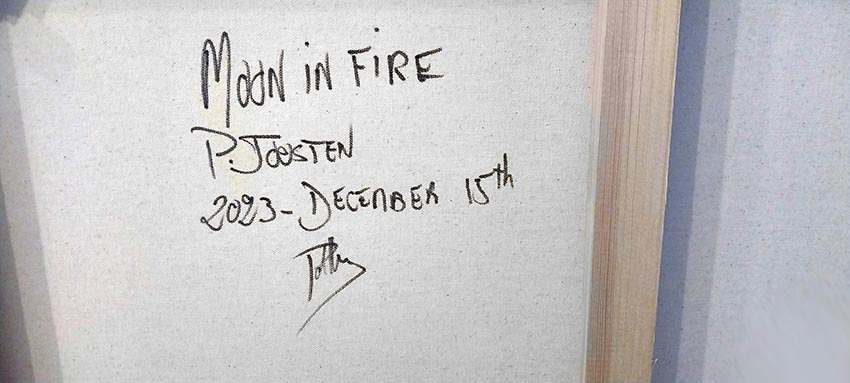 MOON IN FIRE
P. JOOSTEN
2023-DECEMBER 15th